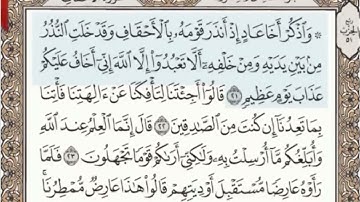 ۞ وَٱذۡكُرۡ أَخَا عَادٍ إِذۡ أَنذَرَ قَوۡمَهُۥ بِٱلۡأَحۡقَافِ وَقَدۡ خَلَتِ ٱلنُّذُرُ
مِنۢ بَيۡنِ يَدَيۡهِ وَمِنۡ خَلۡفِهِۦٓ أَلَّا تَعۡبُدُوٓاْ إِلَّا ٱللَّهَ إِنِّيٓ أَخَافُ عَلَيۡكُمۡ
عَذَابَ يَوۡمٍ عَظِيمٖ ٢١ قَالُوٓاْ أَجِئۡتَنَا لِتَأۡفِكَنَا عَنۡ ءَالِهَتِنَا فَأۡتِنَا
بِمَا تَعِدُنَآ إِن كُنتَ مِنَ ٱلصَّٰدِقِينَ ٢٢ قَالَ إِنَّمَا ٱلۡعِلۡمُ عِندَ ٱللَّهِ
وَأُبَلِّغُكُم مَّآ أُرۡسِلۡتُ بِهِۦ وَلَٰكِنِّيٓ أَرَىٰكُمۡ قَوۡمٗا تَجۡهَلُونَ ٢٣ فَلَمَّا
رَأَوۡهُ عَارِضٗا مُّسۡتَقۡبِلَ أَوۡدِيَتِهِمۡ قَالُواْ هَٰذَا عَارِضٞ مُّمۡطِرُنَاۚ